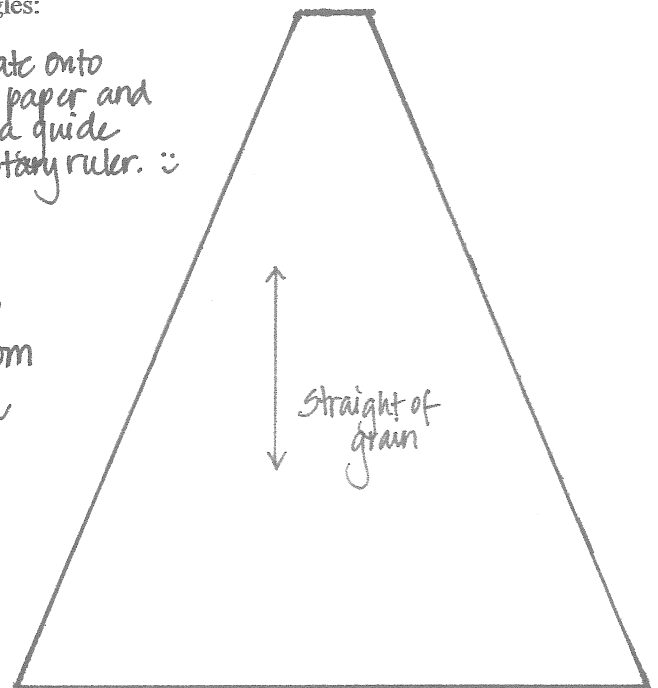 gles:
ate onto
paper and
a guide
tary ruler. :)
om
Straight of
grain